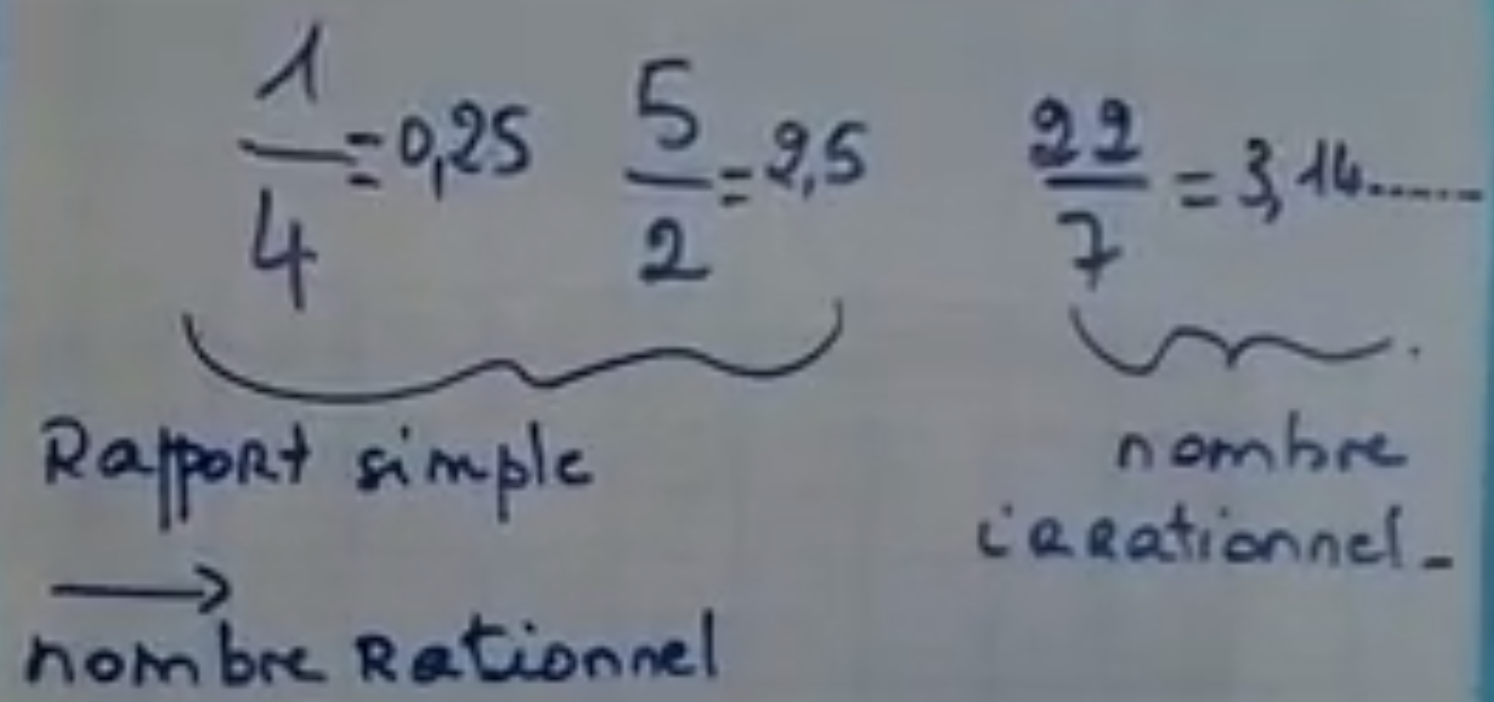 1/4 = 0,25 5/2 = 2,5 22/7 = 3,14......
Rapport simple
nombre
irrationnel.
→
nombre Rationnel